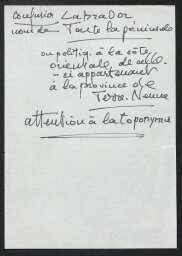 confusion Labrador
nom de Toute la péninsule
ou politiq. à la côte
orientale de celle
-ci appartenant
à la province de
Terre-Neuve
attention à la toponymie